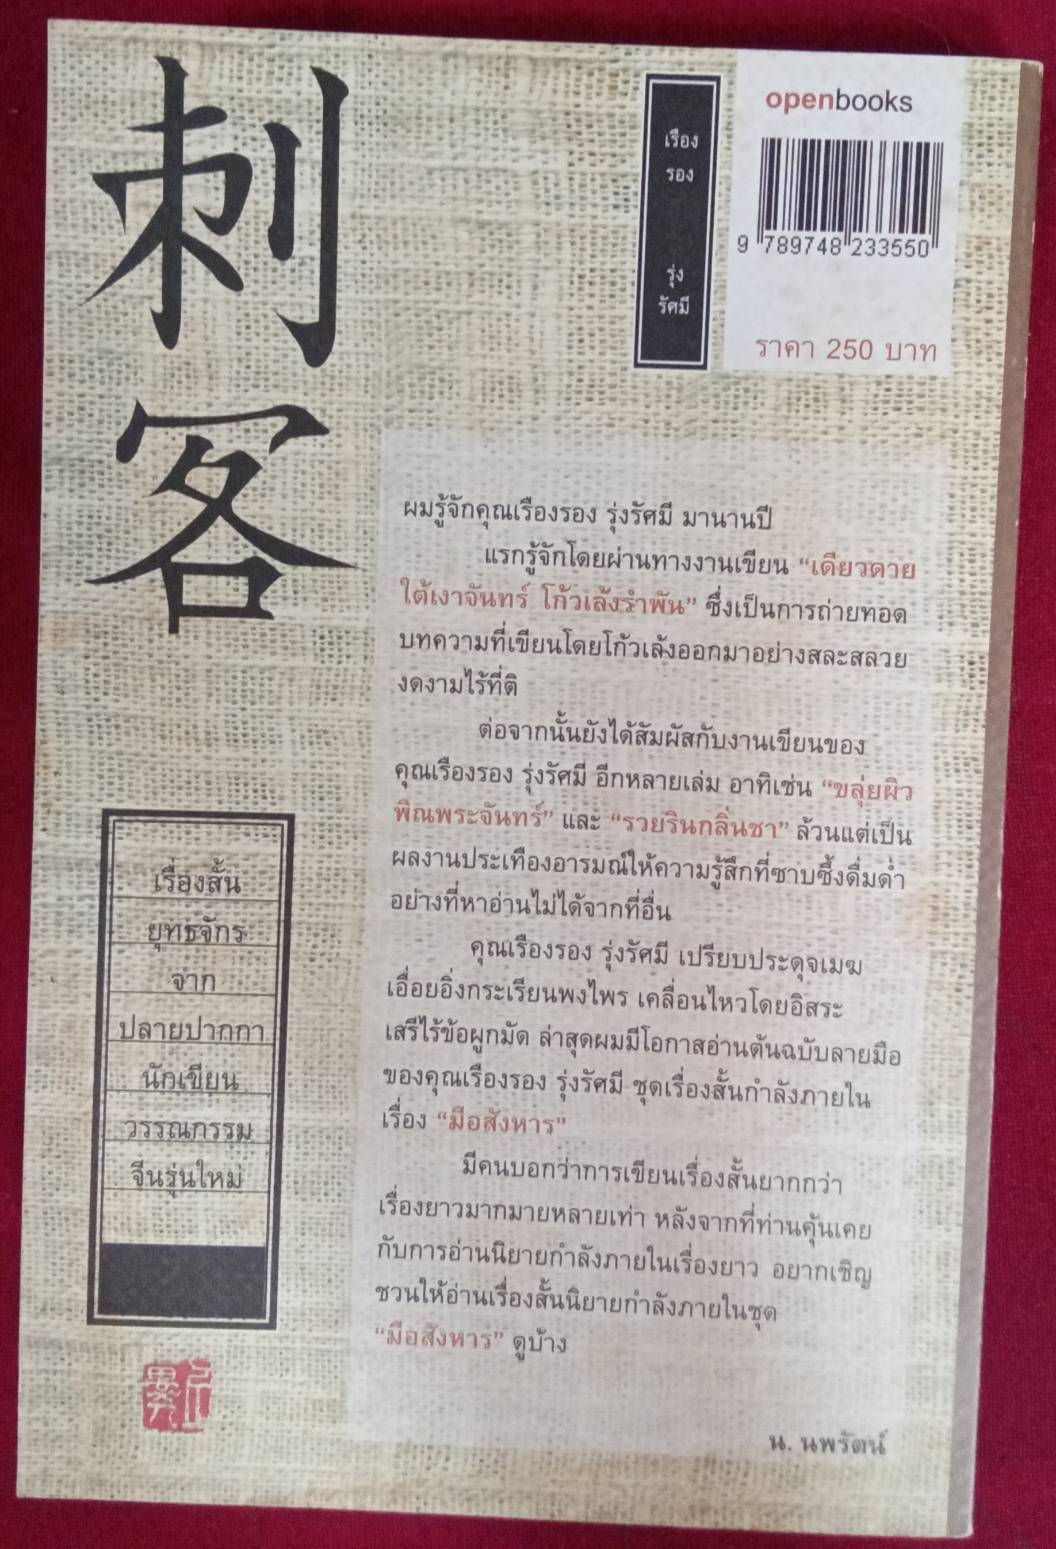 刺
客
เรือง
รอง
รุ่ง
รัศมี
openbooks
9 789748 233550
ราคา 250 บาท
ผมรู้จักคุณเรืองรอง รุ่งรัศมี มานานปี
แรกรู้จักโดยผ่านทางงานเขียน “เดียวดาย
ใต้เงาจันทร์ โก้วเล้งรำพัน” ซึ่งเป็นการถ่ายทอด
บทความที่เขียนโดยโก้วเล้งออกมาอย่างสละสลวย
งดงามไร้ที่ติ
ต่อจากนั้นยังได้สัมผัสกับงานเขียนของ
คุณเรืองรอง รุ่งรัศมี อีกหลายเล่ม อาทิเช่น “ขลุ่ยผิว
พิณพระจันทร์” และ “รวยรินกลิ่นชา” ล้วนแต่เป็น
ผลงานประเทืองอารมณ์ให้ความรู้สึกที่ซาบซึ้งดื่มด่ำ
อย่างที่หาอ่านไม่ได้จากที่อื่น
คุณเรืองรอง รุ่งรัศมี เปรียบประดุจเมฆ
เอื่อยอิ่งกระเรียนพงไพร เคลื่อนไหวโดยอิสระ
เสรีไร้ข้อผูกมัด ล่าสุดผมมีโอกาสอ่านต้นฉบับลายมือ
ของคุณเรืองรอง รุ่งรัศมี ชุดเรื่องสั้นกำลังภายใน
เรื่อง “มือสังหาร”
มีคนบอกว่าการเขียนเรื่องสั้นยากกว่า
เรื่องยาวมากมายหลายเท่า หลังจากที่ท่านคุ้นเคย
กับการอ่านนิยายกำลังภายในเรื่องยาว อยากเชิญ
ชวนให้อ่านเรื่องสั้นนิยายกำลังภายในชุด
“มือสังหาร” ดูบ้าง
น. นพรัตน์
เรื่องสั้น
ยุทธจักร
จาก
ปลายปากกา
นักเขียน
วรรณกรรม
จีนรุ่นใหม่